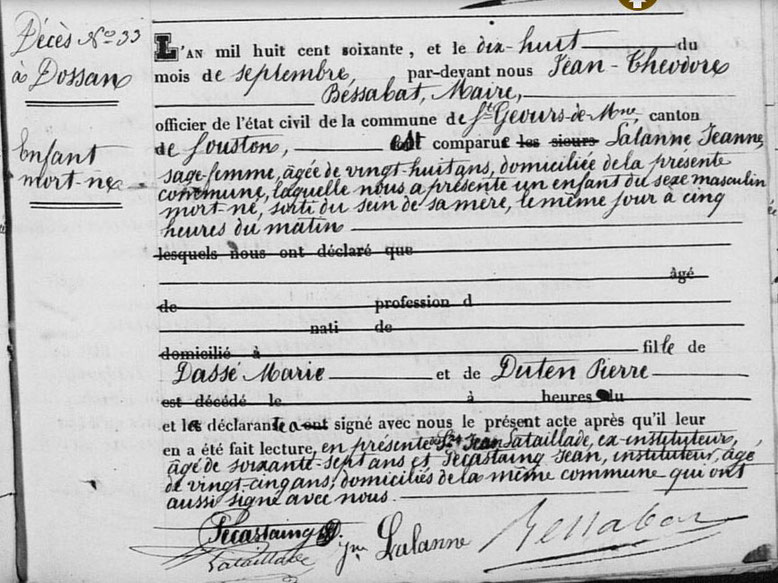 Décès No 33
à Dossan
Enfant
mort-né
L'AN mil huit cent soixante, et le dix-huit du
mois de septembre, par-devant nous Jean-Théodore
Bessabat, Maire,
officier de l'état civil de la commune de St Geours-de-Mne, canton
de Soustons, est comparue les sieurs Lalanne Jeanne,
sage-femme, âgée de vingt-huit ans, domiciliée de la présente
commune, laquelle nous a présenté un enfant du sexe masculin
mort-né, sorti du sein de sa mère, le même jour à cinq
heures du matin
lesquels nous ont déclaré que
âgé
de profession d
nati de
domicilié à fils de
Dasse Marie et de Duten Pierre
est décédé le à heures du
et la déclarante a ont signé avec nous le présent acte après qu'il leur
en a été fait lecture, en présence Jean Lataillade, ex-instituteur,
âgé de soixante-sept ans et Pécastaing Jean, instituteur, âgé
de vingt-cinq ans, domiciliés de la même commune qui ont
aussi signé avec nous.
Pécastaing
Lataillade
Jne Lalanne
Bessabat